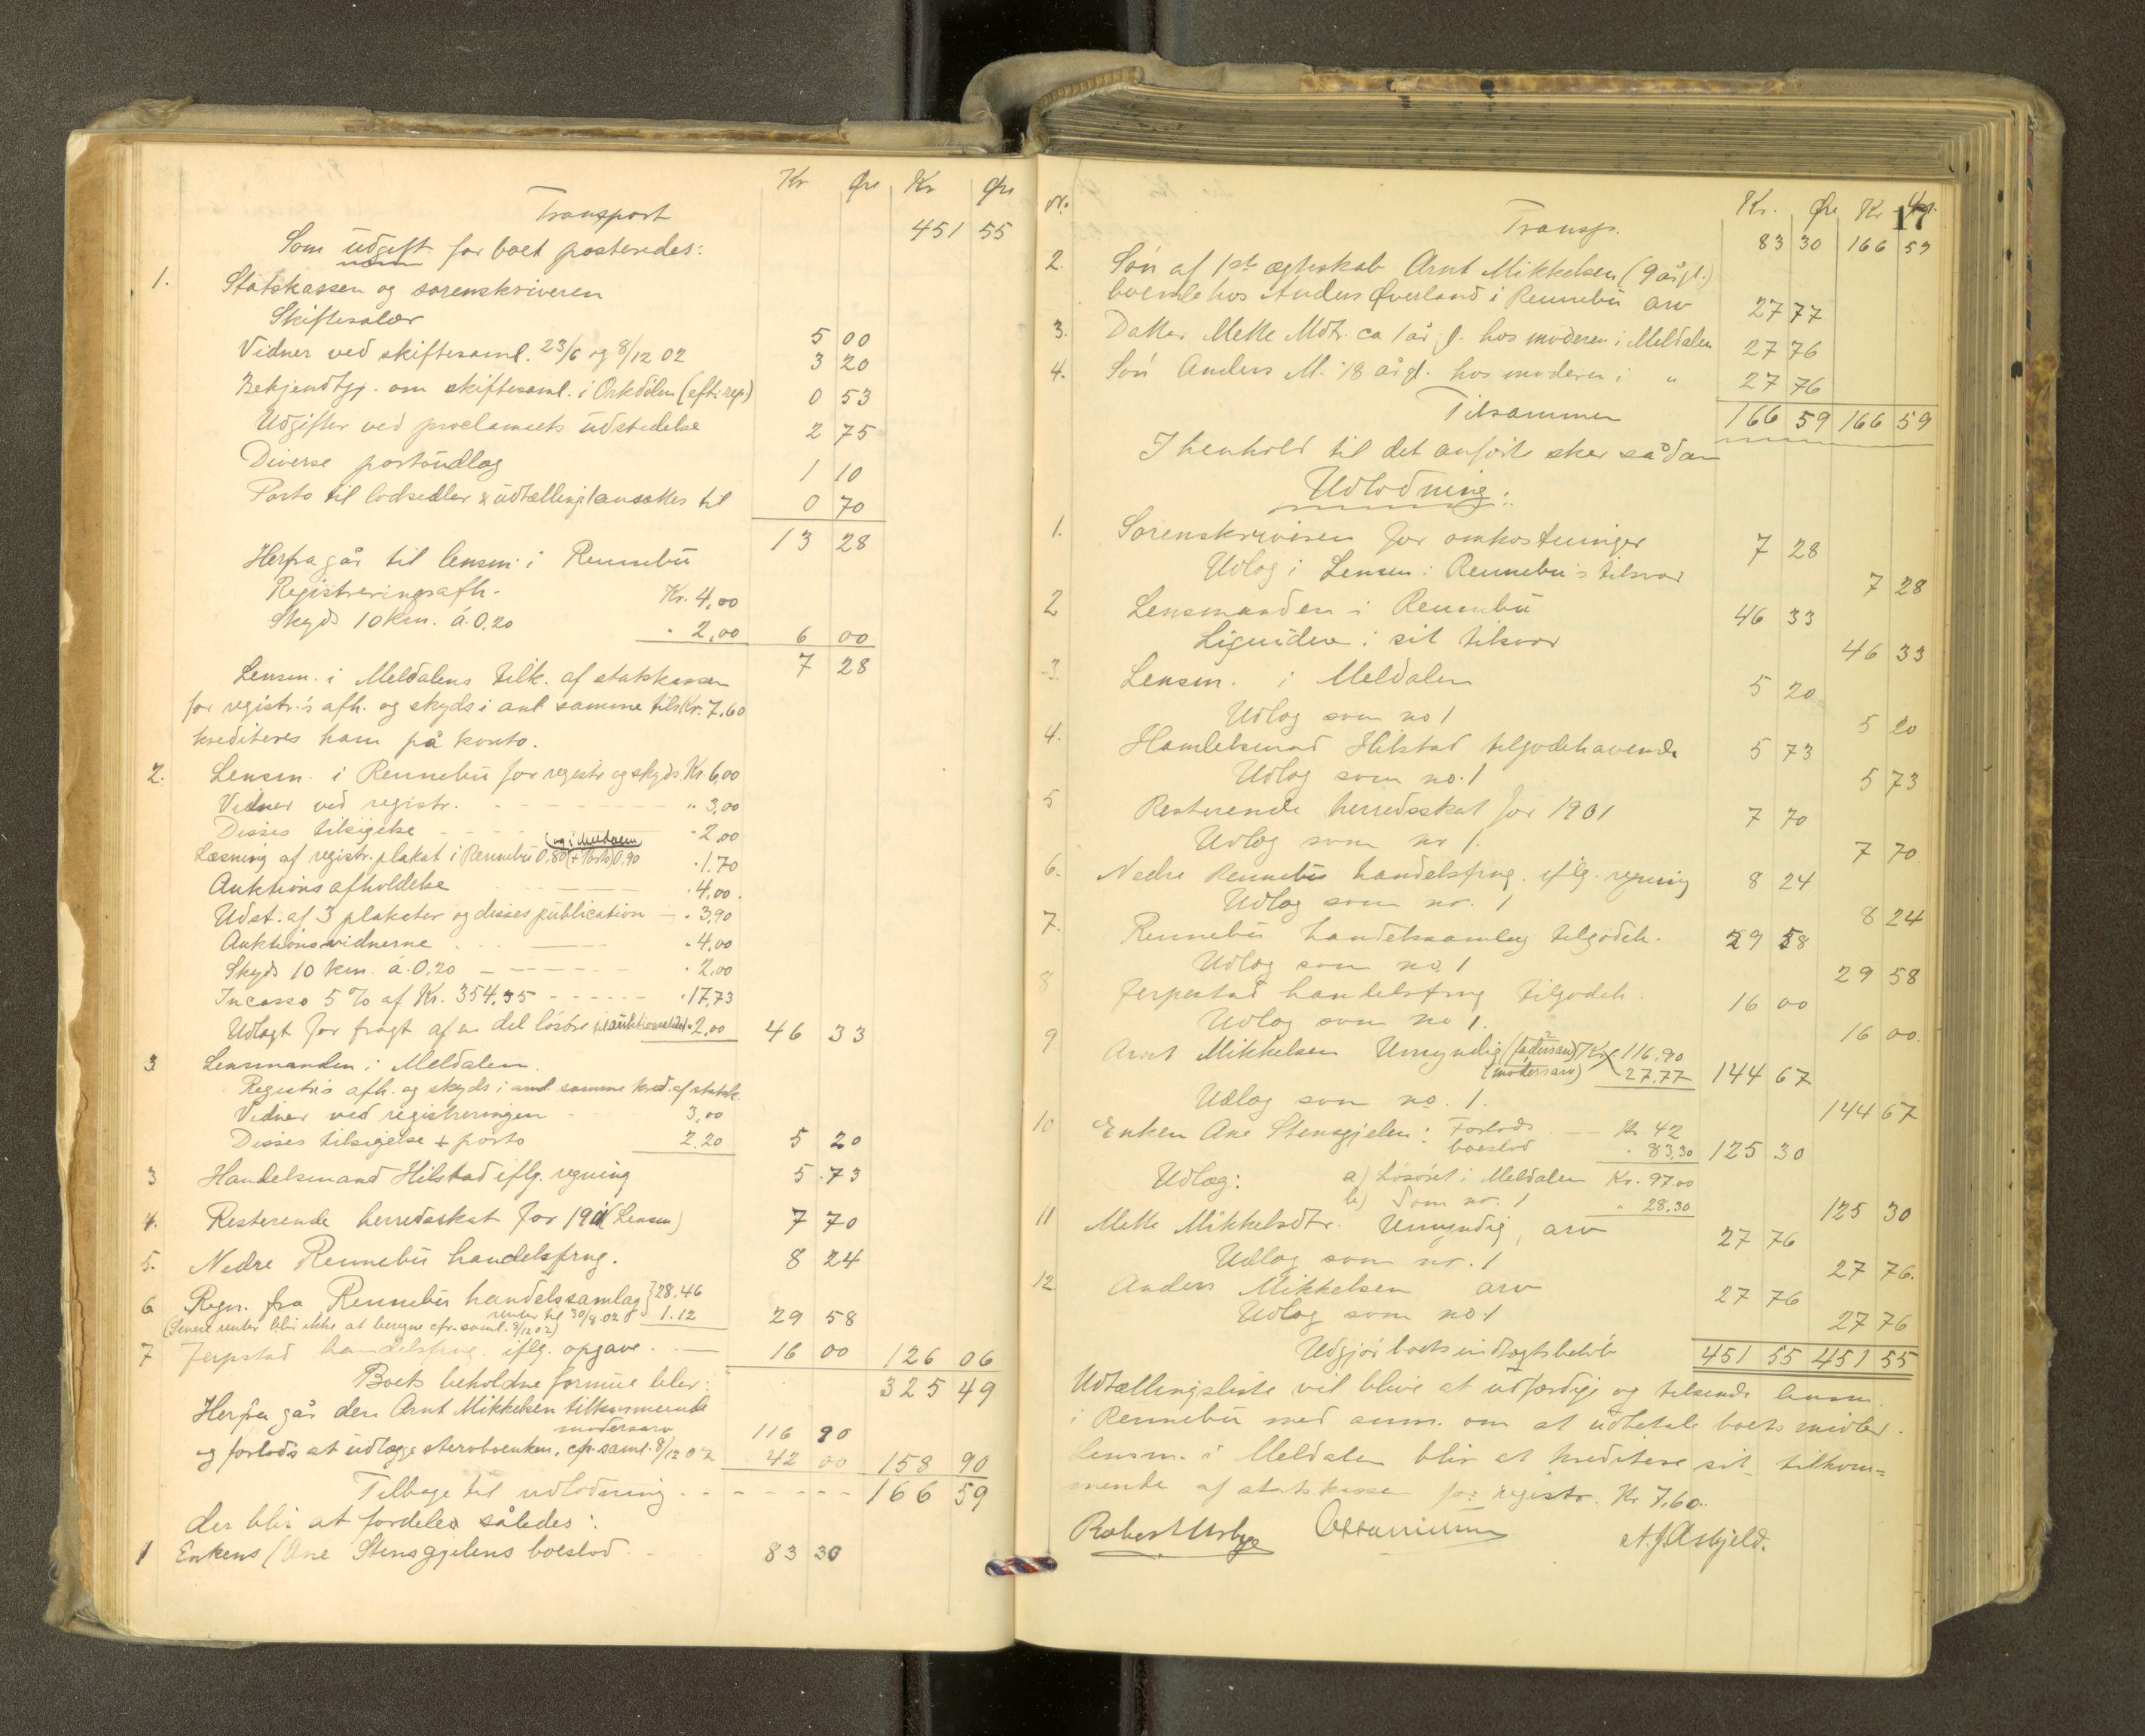 Kr Øre Kr Øre
Transport 451 55
Som udgift for boet posteredes:
1. Statskassen og sorenskriveren
Skiftesalær 5 00
Vidner ved skiftesaml. 23/6 og 8/12 02 3 20
Bekjendtgj. om skiftesaml. i Orkdølen (eft. regn) 0 53
Udgifter ved proclamets udstedelse 2 75
Diverse portoudlæg 1 10
Porto til lodsedler & udtællingsl ansættes til 0 70
13 28
Herfra går til lensm. i Rennebu
Registreringsafh. Kr. 4,00
Skyds 10 km. á. 0,20 " 2,00 6 00
7 28
Lensm. i Meldalens tilk. af statskassen
for registr.s afh. og skyds i anl samme tils Kr. 7,60
krediteres ham på konto.
2. Lensm. i Rennebu for registr og skyds Kr. 6,00
Vidner ved registr. " 3,00
Disses tilsigelse " 2,00
(og i Meldalen
Læsning af registr. plakat i Rennebu 0,80 (+ Porto) 0,90 " 1.70
Auktions afholdelse " 4,00
Udst. af 3 plakater og disses publication " 3,90
Auktionsvidnerne " 4,00
Skyds 10 km. á. 0,20 " 2,00
Incasso 5 % af Kr. 354.55 " 17,73
Udlagt for fragt af en del løsøre til auktionsstedet " 2,00 46 33
3 Lensmanden i Meldalen
Registr.s afh. og skyds i anl. samme kred. af statsk.
Vidner ved registreringen 3,00
Disses tilsigelse + porto 2.20 5 20
3 Handelsmand Hilstad iflg. regning 5.73
4. Resterende herredsskat for 1901 (Lensm) 7 70
5. Nedre Rennebu handelsfrng. 8 24
6 Regn. fra Rennebu handelssamlag } 28.46
renter til 30/8 02 1.12
(Senere renter blir ikke at beregne cfr. saml. 8/12 02) 29 58
7 Jerpstad handelsfrng. iflg. opgave. 16 00 126 06
Boets beholdne formue blir: 325 49
Herfra går den Arnt Mikkelsen tilkommende
modersarv 116 90
og forlods at udlægge stervboenken, cfr. saml. 8/12 02 42 00 158 90
Tilbage til udlodning 166 59
der blir at fordeles således:
1 Enkens (Ane Stensgjelens boeslod 83 30
17
Nr. Kr. Øre Kr Øre
Transp. 83 30 166 59
2. Søn af 1st ægteskab Arnt Mikkelsen (9 år gl.)
boende hos Anders Øverland i Rennebu arv 27 77
3. Datter Mette Mdtr. ca 1 år g. hos moderen i Meldalen 27 76
4. Søn Anders M. 18 år gl. hos moderen i " 27 76
Tilsammen 166 59 166 59
I henhold til det anførte sker sådan
Udlodning:
1. Sorenskriveren for omkostninger 7 28
Udlæg i Lensm. i Rennebu's tilsvar 7 28
2 Lensmanden i Rennebu 46 33
Liquidere i sit tilsvar 46 33
3. Lensm. i Meldalen 5 20
Udlæg som no 1 5 20
4. Handelsmand Hilstad tilgodehavende 5 73
Udlæg som no. 1 5 73
5 Resterende herredsskat for 1901 7 70
Udlæg som nr 1. 7 70
6. Nedre Rennebu handelsfrng. iflg. regning 8 24
Udlæg som nr. 1 8 24
7. Rennebu handelssamlag tilgodeh. 29 58
Udlæg som no. 1 29 58
8 Jerpestad handelsfrng tilgodeh. 16 00
Udlæg som no 1. 16 00.
9 Arnt Mikkelsen Umyndig (fadersarv) Kr. 116.90
(modersarv) 27.77 144 67
Udlæg som no. 1. 144 67
10 Enken Ane Stensgjelen: Forlods Kr. 42
boeslod " 83,30 125 30
Udlæg: a) Løsøret i Meldalen Kr. 97.00
b) Som nr. 1 " 28.30 125 30
11 Mette Mikkelsdtr. Umyndig, arv 27 76
Udlæg som nr. 1 27 76.
12 Anders Mikkelsen arv 27 76
Udlæg som no. 1 27 76
Udgjør boets indtægtsbeløb 451 55 451 55
Udtællingsliste vil blive at udfærdige og tilsende lensm.
i Rennebu med anm. om at udbetale boets midler.
Lensm. i Meldalen blir at kreditere sit tilkom=
mende af statskassen for registr. Kr 7,60.
Robert Usbye A. J. Asbjeld.